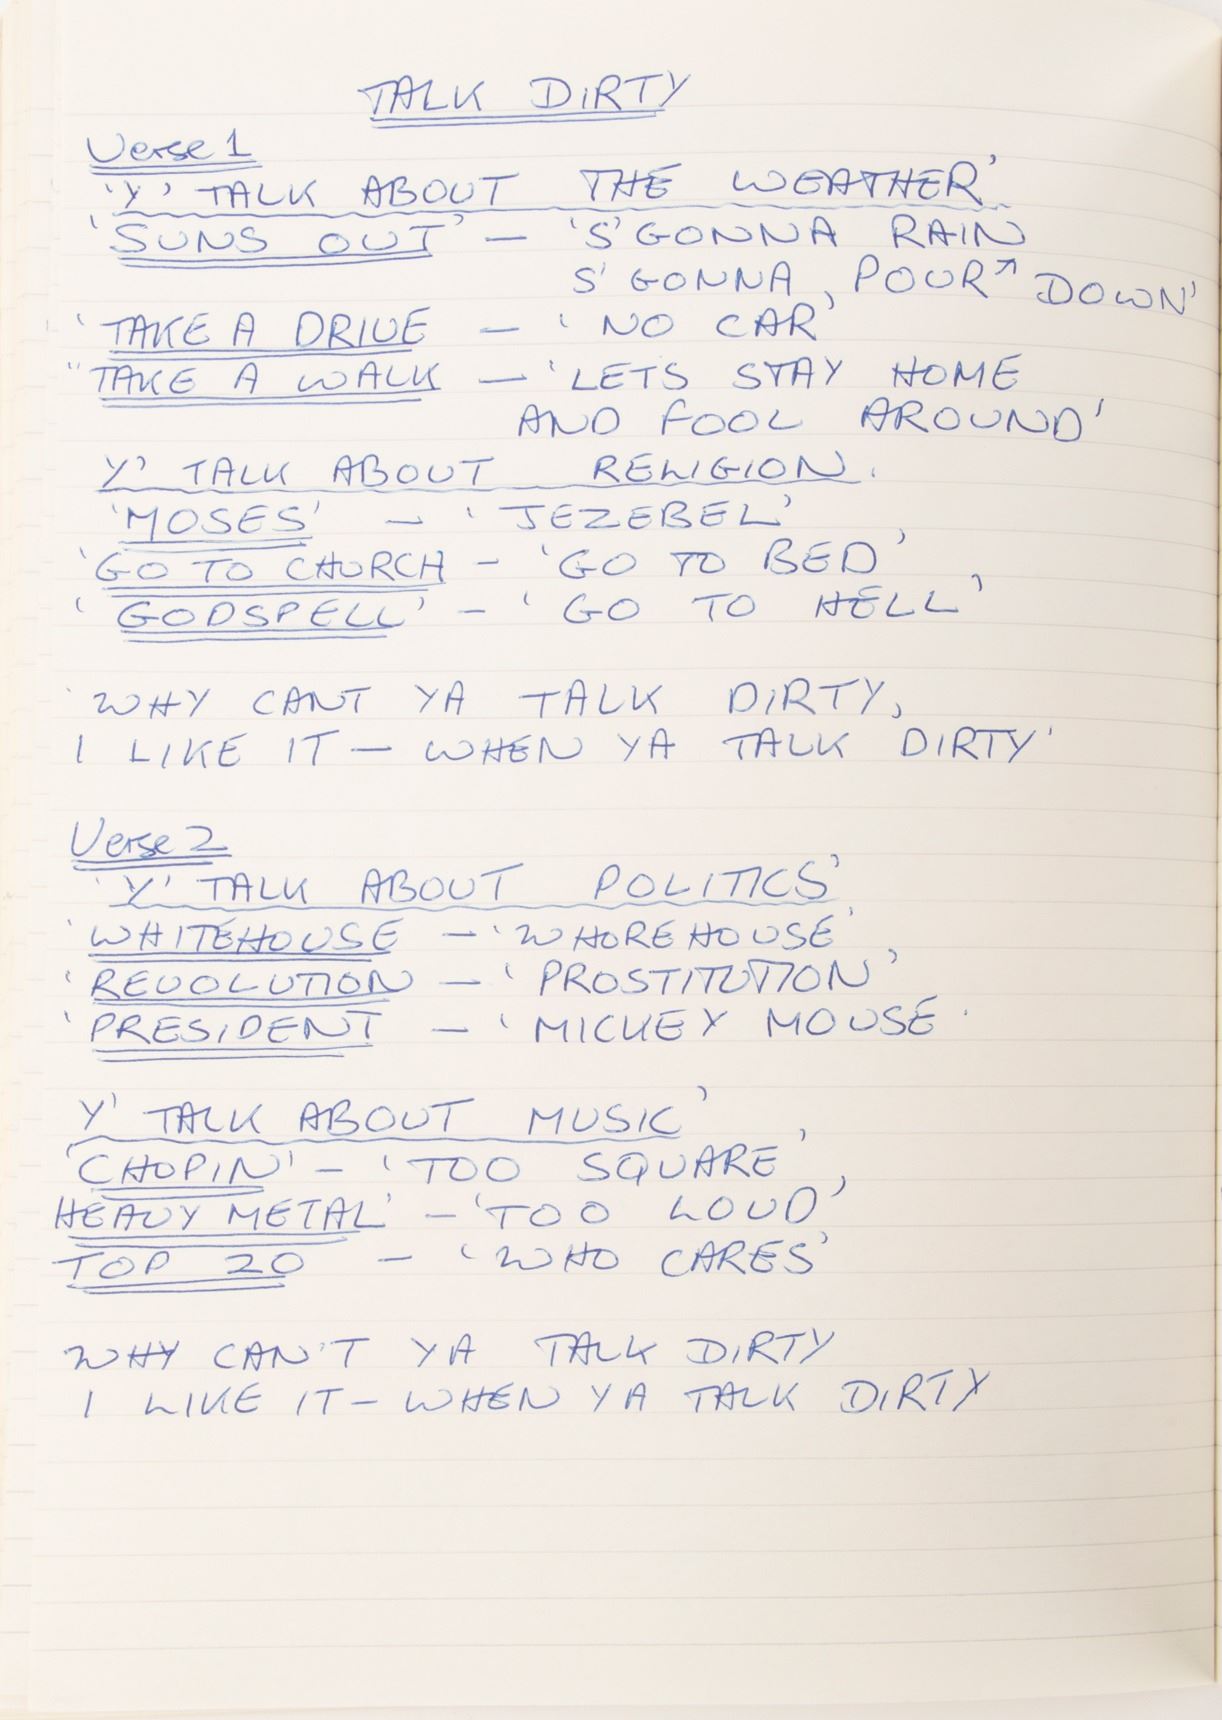 TALK DIRTY
Verse 1
'Y' TALK ABOUT THE WEATHER'
'SUNS OUT' - 'S'GONNA RAIN
S'GONNA POUR↗ DOWN'
'TAKE A DRIVE - 'NO CAR'
"TAKE A WALK - 'LETS STAY HOME
AND FOOL AROUND'
Y' TALK ABOUT RELIGION.
'MOSES' - 'JEZEBEL'
'GO TO CHURCH - 'GO TO BED'
'GODSPELL' - 'GO TO HELL'
'WHY CANT YA TALK DIRTY,
I LIKE IT - WHEN YA TALK DIRTY'
Verse 2
'Y' TALK ABOUT POLITICS'
'WHITEHOUSE - 'WHOREHOUSE'
'REVOLUTION - 'PROSTITUTION'
'PRESIDENT - 'MICKEY MOUSE'
Y' TALK ABOUT MUSIC'
'CHOPIN' - 'TOO SQUARE'
HEAVY METAL' - 'TOO LOUD'
TOP 20 - 'WHO CARES'
WHY CAN'T YA TALK DIRTY
I LIKE IT - WHEN YA TALK DIRTY